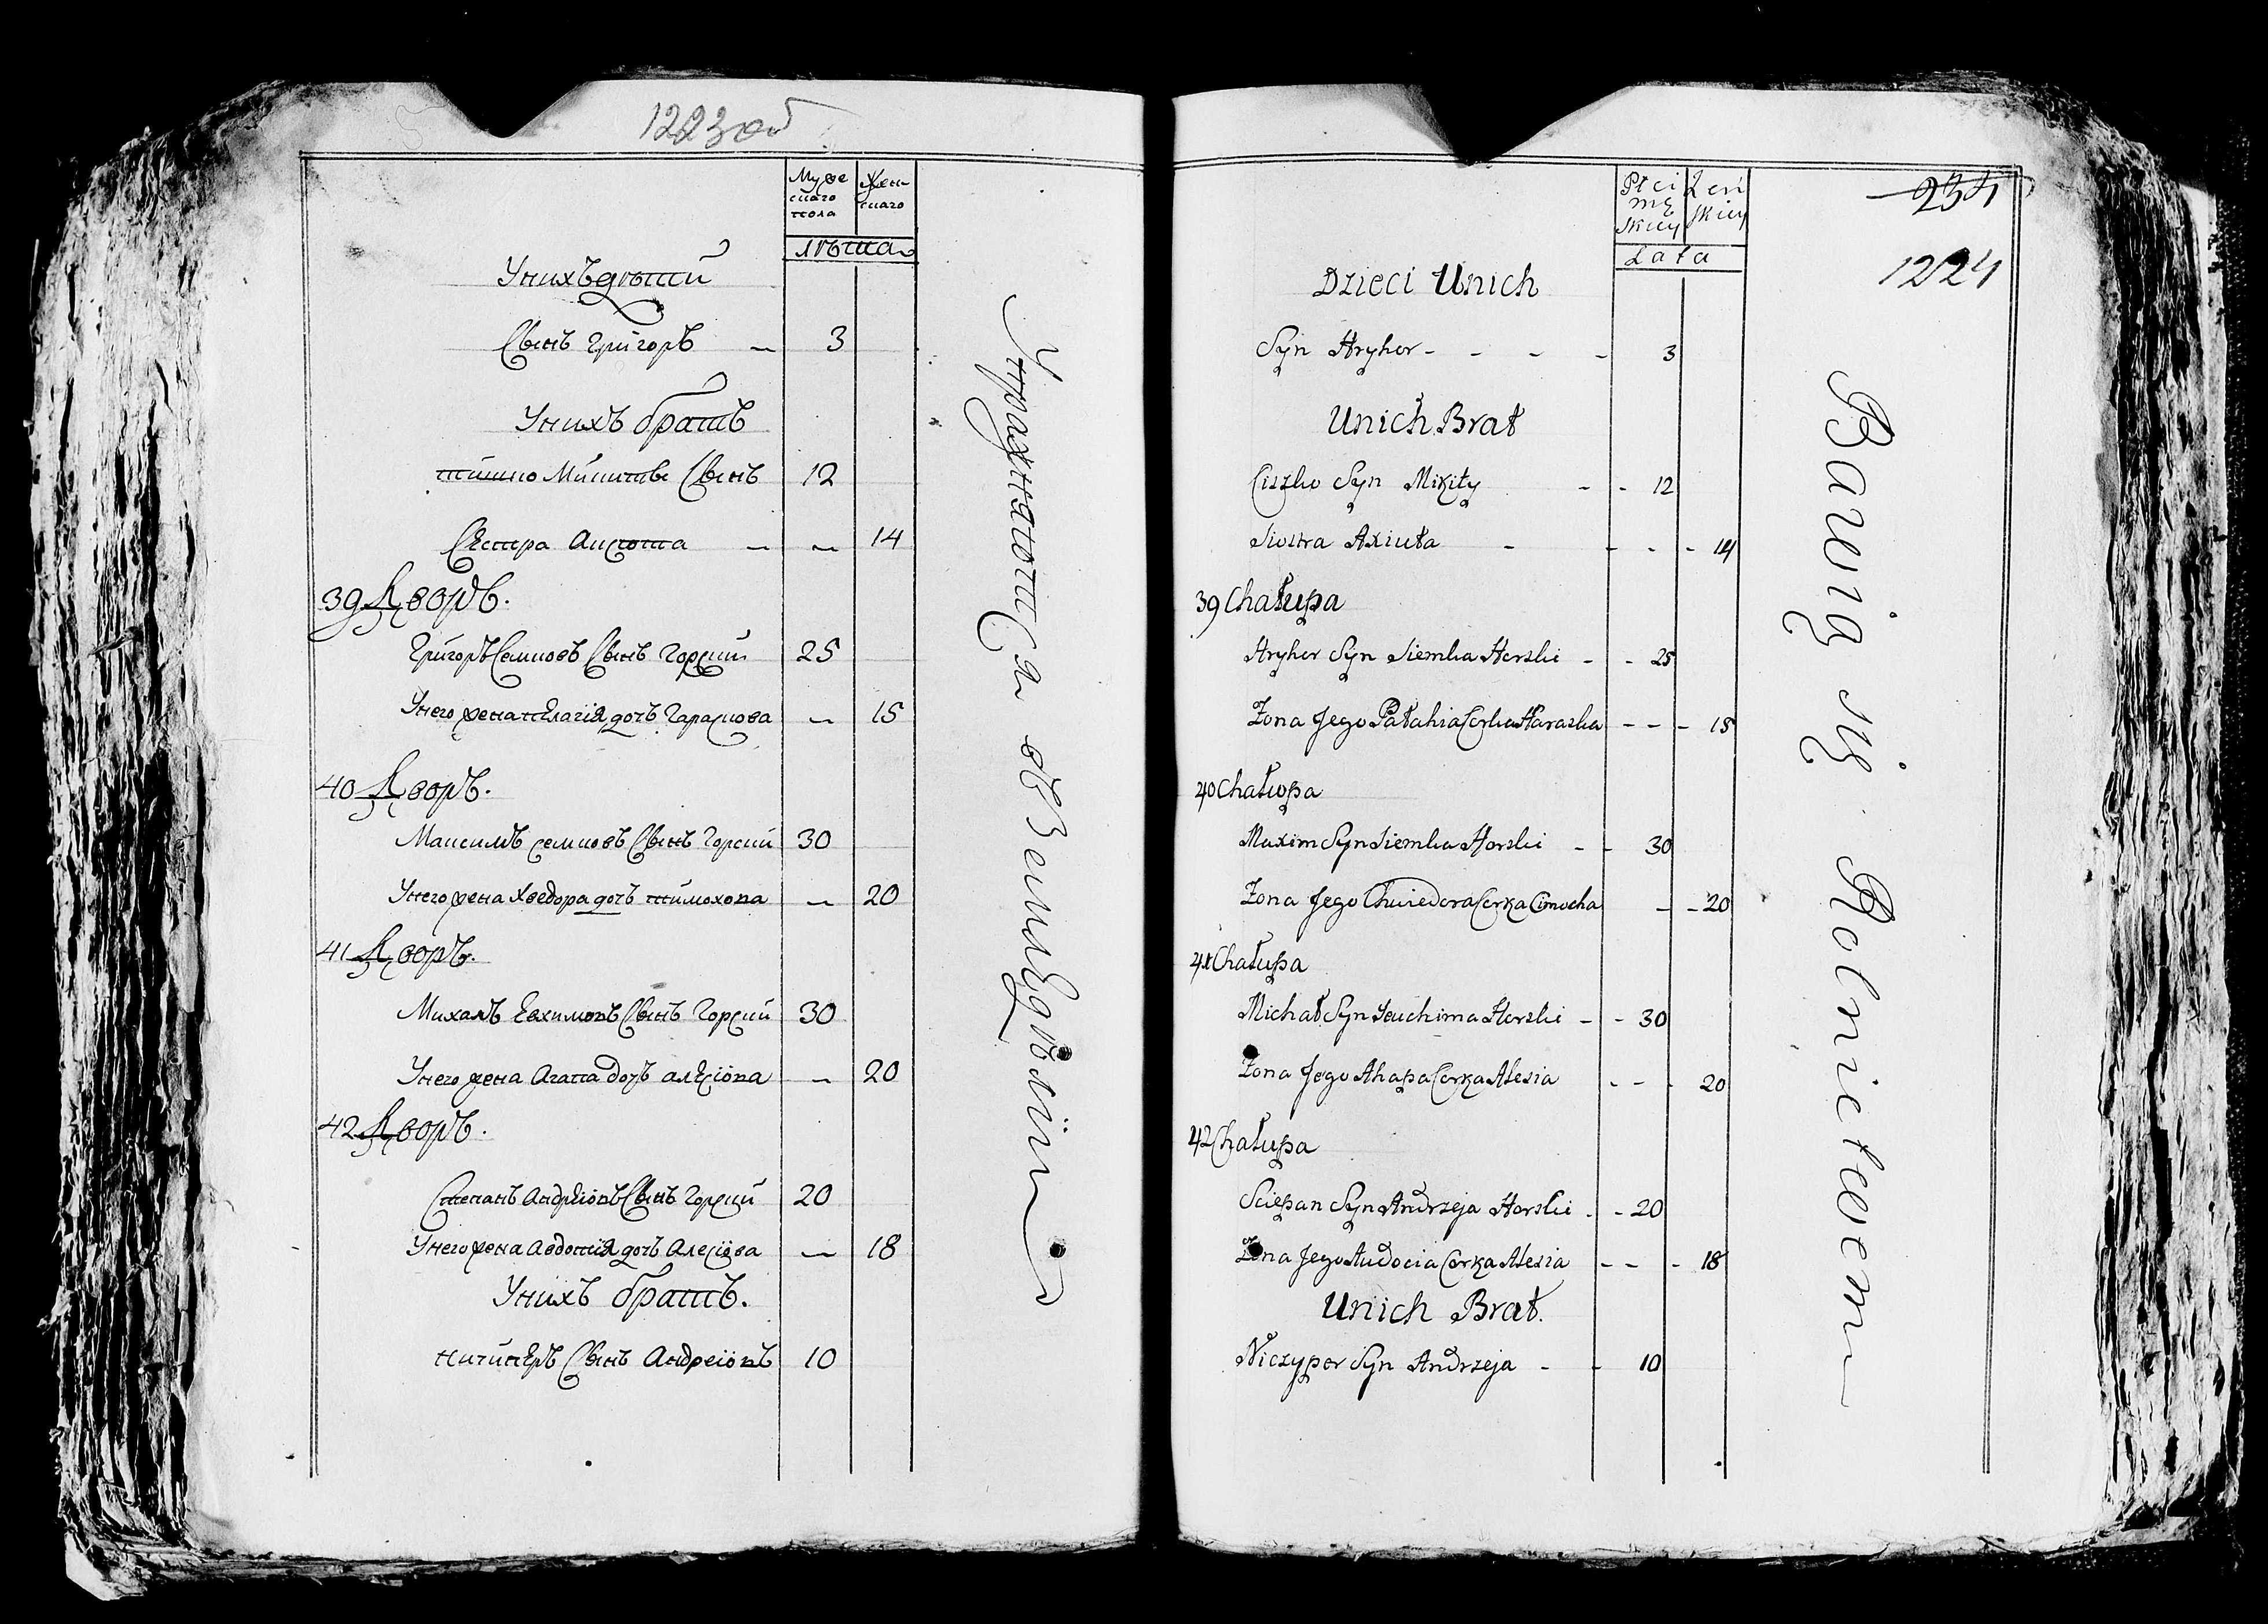 1223об
Муже
скаго
пола
Жен
скаго
лѣта
Унихъ дѣти
Сынъ Григоръ 3
Унихъ братъ
тишко Микиты Сынъ 12
Сестра Аксюта 14
39 Дворъ.
Григоръ Семковъ Сынъ Горский 25
Унего жена пелагiя дочъ Гараскова 15
40 Дворъ.
Максимъ семковъ Сынъ Горский 30
Унего жена Хведора дочъ тимохова 20
41 Дворъ.
Михалъ Евхимовъ Сынъ Горский 30
Унего жена Агапа дочъ алесiова 20
42 Дворъ.
Степанъ Андреiовъ Сынъ Горский 20
Унего жена Авдотiя дочъ Алесiова 18
Унихъ братъ.
ничипяръ Сынъ Андреiовъ 10
Упражняются въ Земледѣлiи
234
1224
Płci
mę
skiey
Żeń
skiey
Lata
Dzieci Unich
Syn Hryhor - - - - 3
Unich Brat
Ciszko Syn Mikity - - 12
Siostra Axiuta - - - - 14
39 Chałupa
Hryhor Syn Siemka Horski - - 25
Żona Jego Pałahia Corka Haraska - - - 15
40 Chałupa
Maxim Syn Siemka Horski - - 30
Żona Jego Chwiedora Corka Cimocha - - 20
41 Chałupa
Michał Syn Jeuchima Horski - - 30
Żona Jego Ahapa Corka Alesia - - - 20
42 Chałupa
Sciepan Syn Andrzeja Horski - - 20
Żona Jego Audocia Corka Alesia - - - 18
Unich Brat.
Niczypor Syn Andrzeja - - 10
Bawią się Rolnictwem